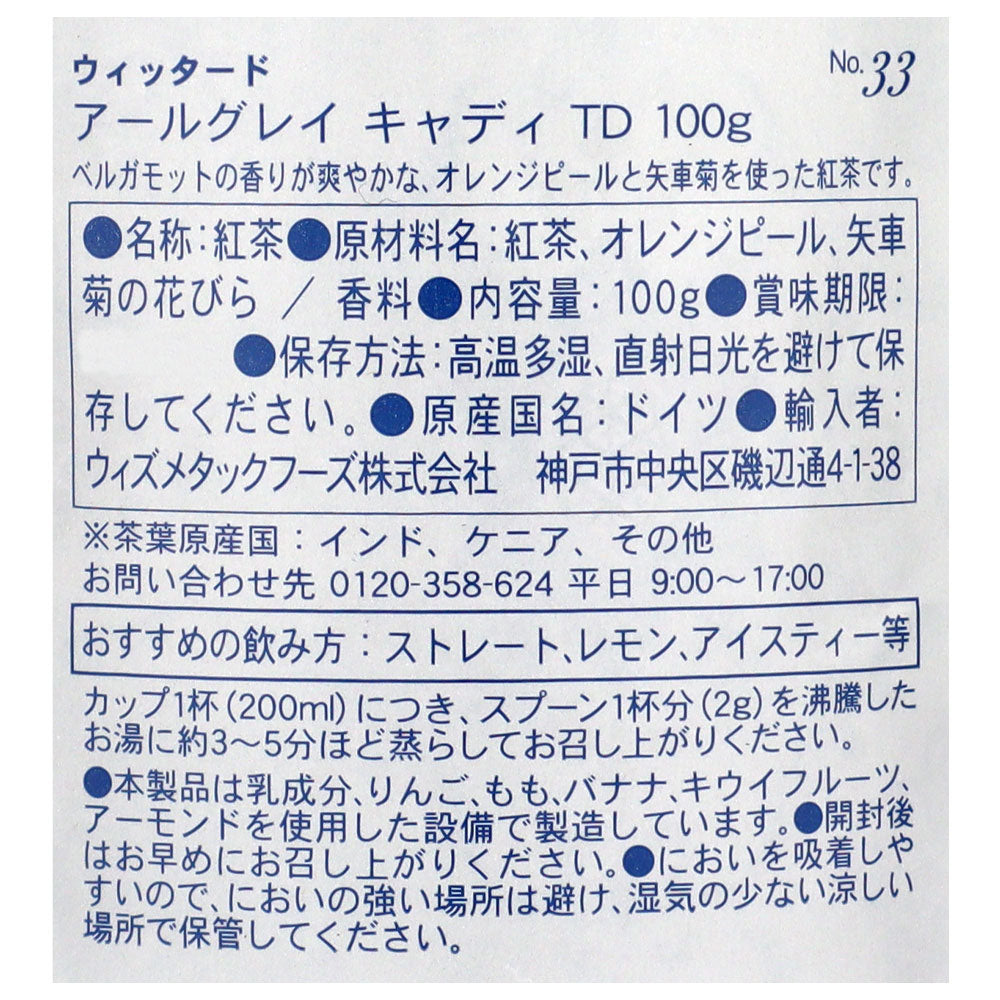 ウィッタード
No.33
アールグレイ キャディ TD 100g
ベルガモットの香りが爽やかな、オレンジピールと矢車菊を使った紅茶です。
●名称：紅茶●原材料名：紅茶、オレンジピール、矢車
菊の花びら ／ 香料●内容量：100g●賞味期限：
●保存方法：高温多湿、直射日光を避けて保
存してください。●原産国名：ドイツ●輸入者：
ウィズメタックフーズ株式会社　神戸市中央区磯辺通4-1-38
※茶葉原産国：インド、ケニア、その他
お問い合わせ先 0120-358-624 平日 9:00～17:00
おすすめの飲み方：ストレート、レモン、アイスティー等
カップ1杯(200ml)につき、スプーン1杯分(2g)を沸騰した
お湯に約3～5分ほど蒸らしてお召し上がりください。
●本製品は乳成分、りんご、もも、バナナ、キウイフルーツ、
アーモンドを使用した設備で製造しています。●開封後
はお早めにお召し上がりください。●においを吸着しや
すいので、においの強い場所は避け、湿気の少ない涼しい
場所で保管してください。